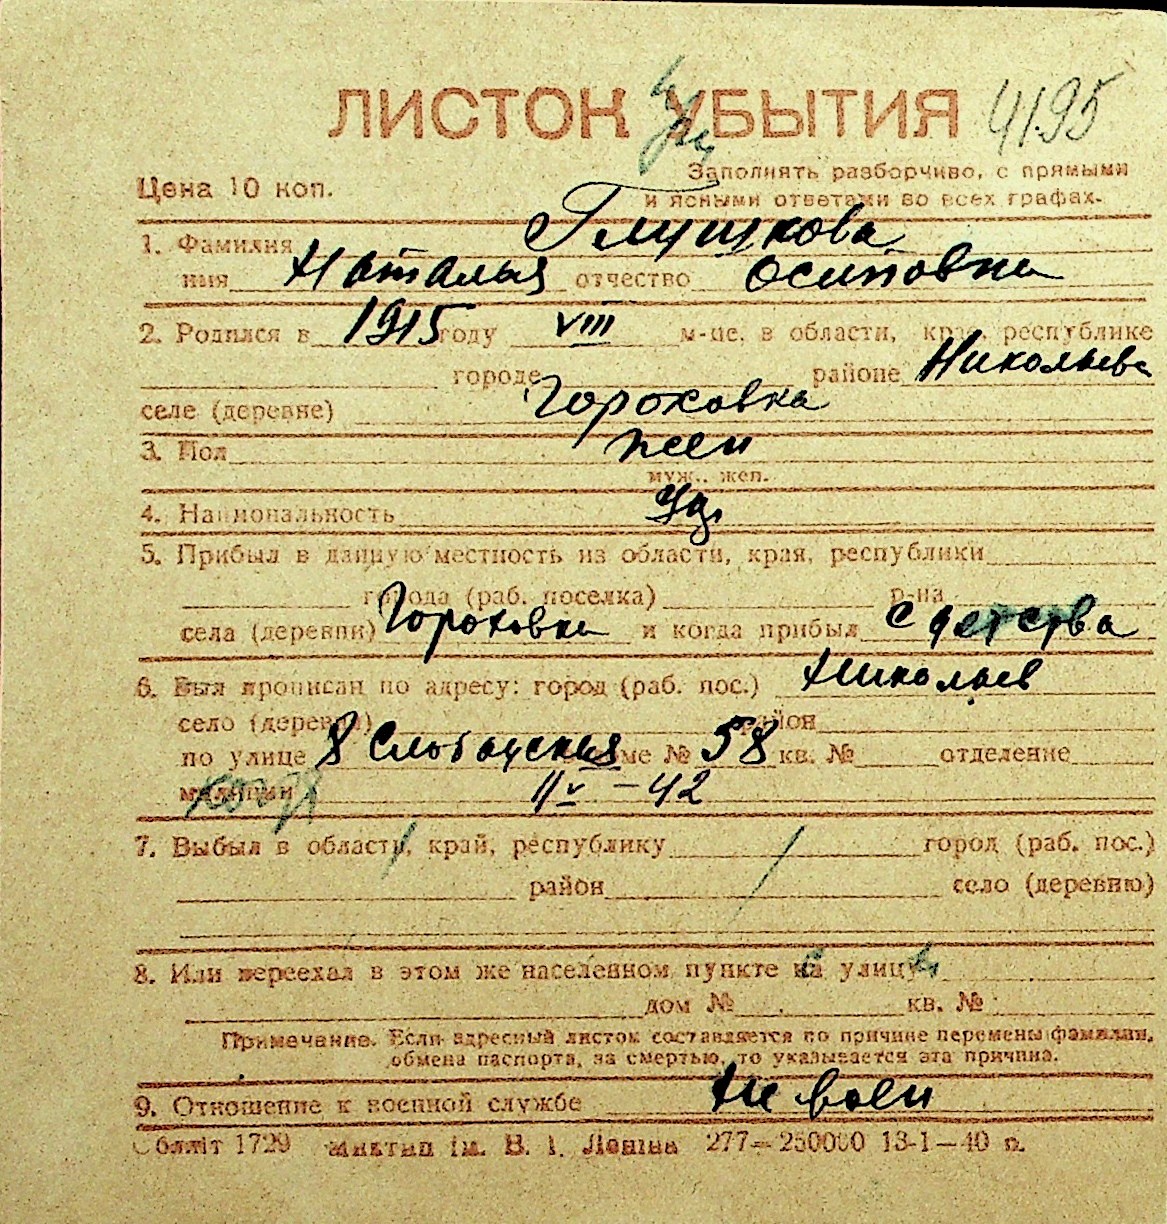 ЛИСТОК УБЫТИЯ 4195
Цена 10 коп.
Заполнять разборчиво, с прямыми
и ясными ответами во всех графах.
1. Фамилия Глушкова
имя Наталья отчество Осиповна
2. Родился в 1915 году VIII м-це, в области, крае, республике
городе районе Николаев
селе (деревне) Гороховка
3. Пол жен
муж., жен.
4. Национальность
5. Прибыл в данную местность из области, края, республики
города (раб. поселка) р-на
села (деревни) Гороховка и когда прибыл с детства
6. Был прописан по адресу: город (раб. пос.) Николаев
село (деревня) район
по улице 8 Слободская доме № 58 кв. № отделение
милиции 11 V - 42
7. Выбыл в область, край, республику город (раб. пос.)
район село (деревню)
8. Или переехал в этом же населенном пункте на улицу
дом № кв. №
Примечание. Если адресный листок составляется по причине перемены фамилии,
обмена паспорта, за смертью, то указывается эта причина.
9. Отношение к военной службе Не воен
Обліт 1729 ім. В. І. Леніна 277—250000 13-1—40 п.